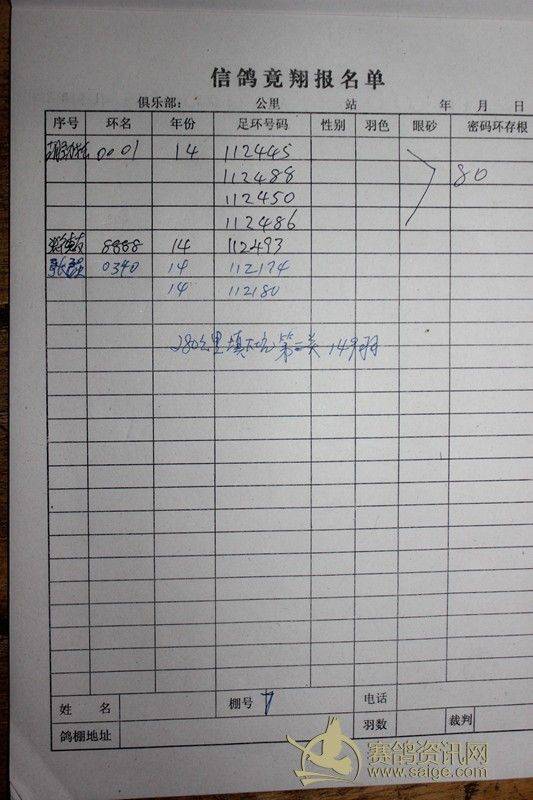 信鸽竞翔报名单
俱乐部: 公里 站 年 月 日
序号 环名 年份 足环号码 性别 羽色 眼砂 密码环存根
0001 14 112445
112488 80
112450
112486
8888 14 112493
0340 14 112174
14 112180
280公里 第二关 149羽
姓 名 棚号 7 电话
鸽棚地址 羽数 裁判
赛鸽资讯网
www.saige.com